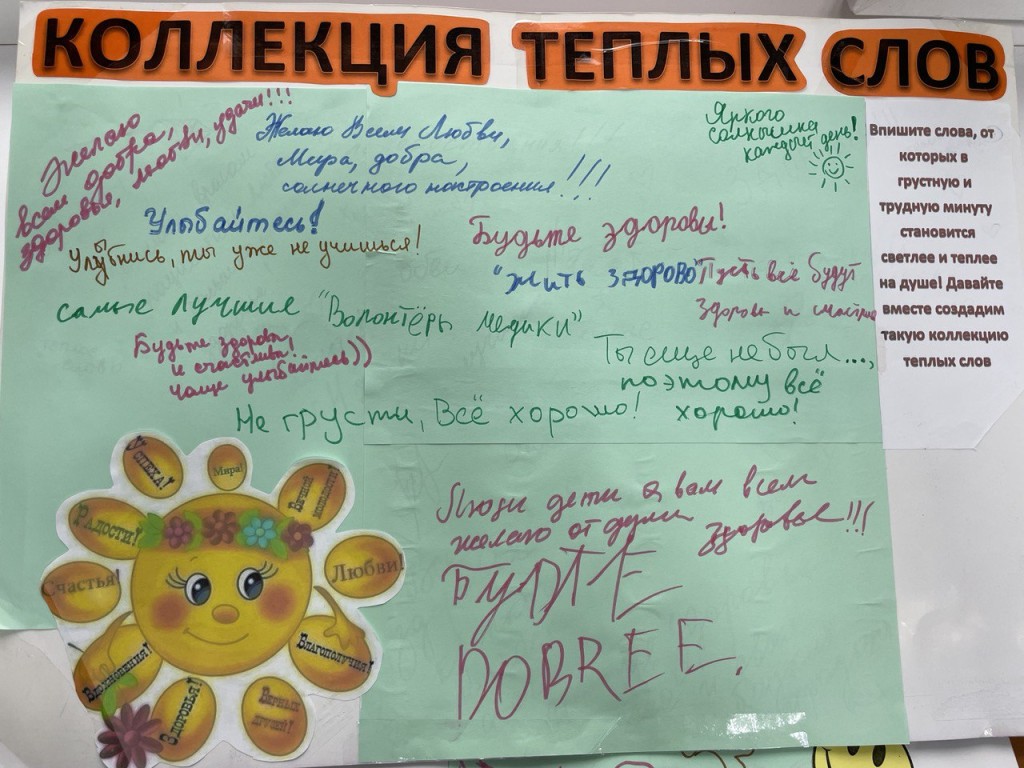 КОЛЛЕКЦИЯ ТЕПЛЫХ СЛОВ
Желаю
всем добра,
здоровье, любви, удачи!!!
Желаю Всем Любви,
Мира, добра,
солнечного настроения!!!
Яркого
солнышка
каждый день!
Впишите слова, от
которых в
грустную и
трудную минуту
становится
светлее и теплее
на душе! Давайте
вместе создадим
такую коллекцию
теплых слов
Улыбайтесь!
Улыбнись, ты уже не учишься!
Будьте здоровы!
"Жить здорово"
Пусть все будут
здоровы и
самые лучшие "Волонтёры медики"
Будьте здоровы,
и счастливы.
Чаще улыбайтесь))
Ты еще не был...,
поэтому всё
хорошо!
Не грусти, Всё хорошо!
Успеха!
Мира!
Вечной молодости!
Радости!
Любви!
Счастья!
Вдохновения!
Благополучия!
Здоровья!
Верных
друзей!
Люди дети я вам всем
желаю от души здоровье!!!
БУДТЕ
DOBREE.